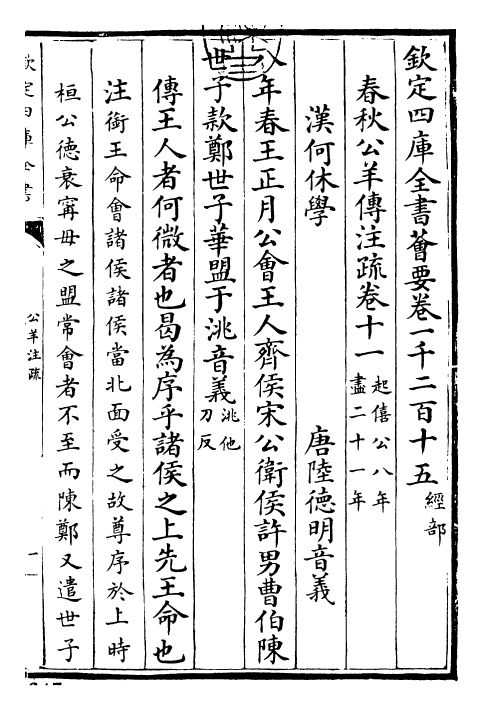 欽定四庫全書薈要卷一千二百十五 經部
春秋公羊傳注疏卷十一 起僖公八年 盡二十一年
漢何休學 唐陸德明音義
八年春王正月公會王人齊侯宋公衛侯許男曹伯陳
世子款鄭世子華盟于洮音義 洮他 刀反
傳王人者何微者也曷為序乎諸侯之上先王命也
注銜王命會諸侯諸侯當北面受之故尊序於上時
桓公德衰甯毋之盟常會者不至而陳鄭又遣世子
欽定四庫全書
公羊注疏
一